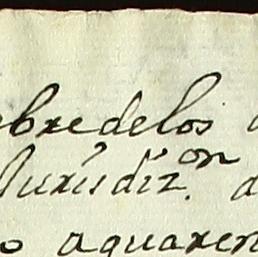 ebredelos
Jurisdiz.on d
o aquaren